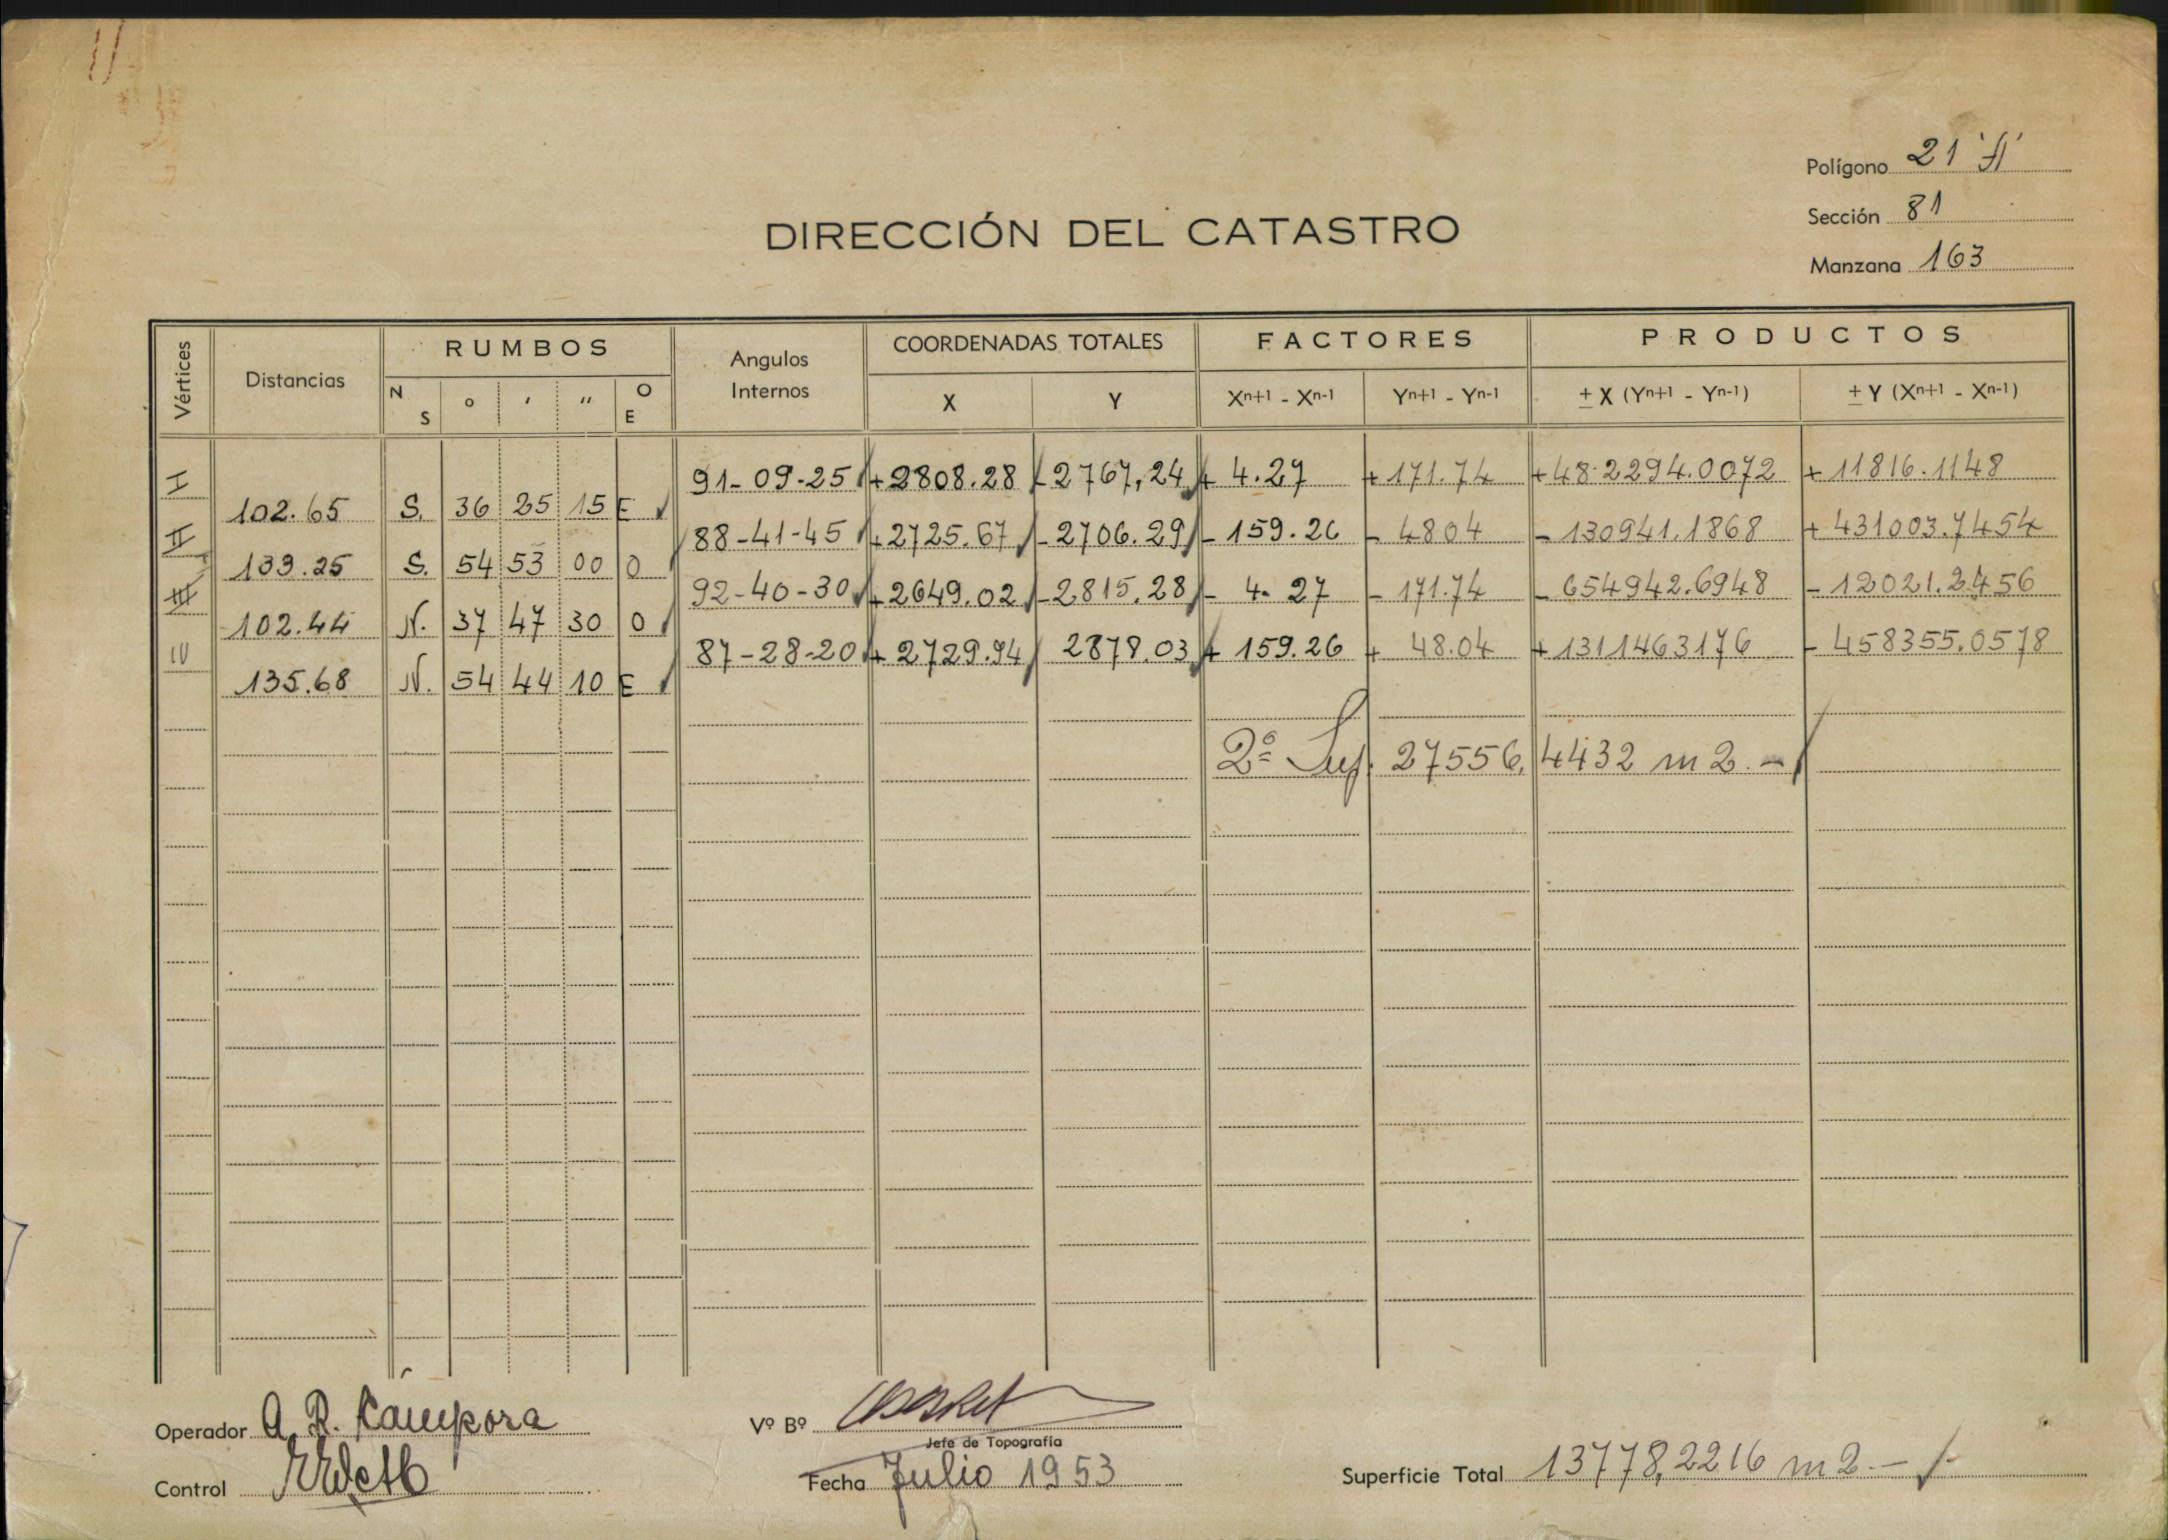 Polígono 21 'A'
Sección 81
DIRECCIÓN DEL CATASTRO
Manzana 163
Vértices Distancias RUMBOS Angulos Internos COORDENADAS TOTALES FACTORES PRODUCTOS
N S ° ' " O E X Y Xn+1 - Xn-1 Yn+1 - Yn-1 ± X (Yn+1 - Yn-1) ± Y (Xn+1 - Xn-1)
I 91-09-25 +2808.28 -2767,24 + 4.27 +171.74 +48.2294.0072 + 11816.1148
102.65 S. 36 25 15 E
II 88-41-45 +2725.67 -2706.29 - 159.26 - 4804 - 130941.1868 + 431003.7454
133.25 S. 54 53 00 O
III 92-40-30 +2649.02 -2815.28 - 4.27 - 171.74 - 654942.6948 - 12021.2456
102.44 N. 37 47 30 O
IV 87-28-20 + 2729.94 2878.03 + 159.26 + 48.04 +1311463176 - 458355.0578
135.68 N. 54 44 10 E
2ª Sup. 27556,4432 m2.-
Operador A. R. Cámpora
Vº Bº
Jefe de Topografía
Control
Fecha Julio 1953
Superficie Total 13778,2216 m2.-